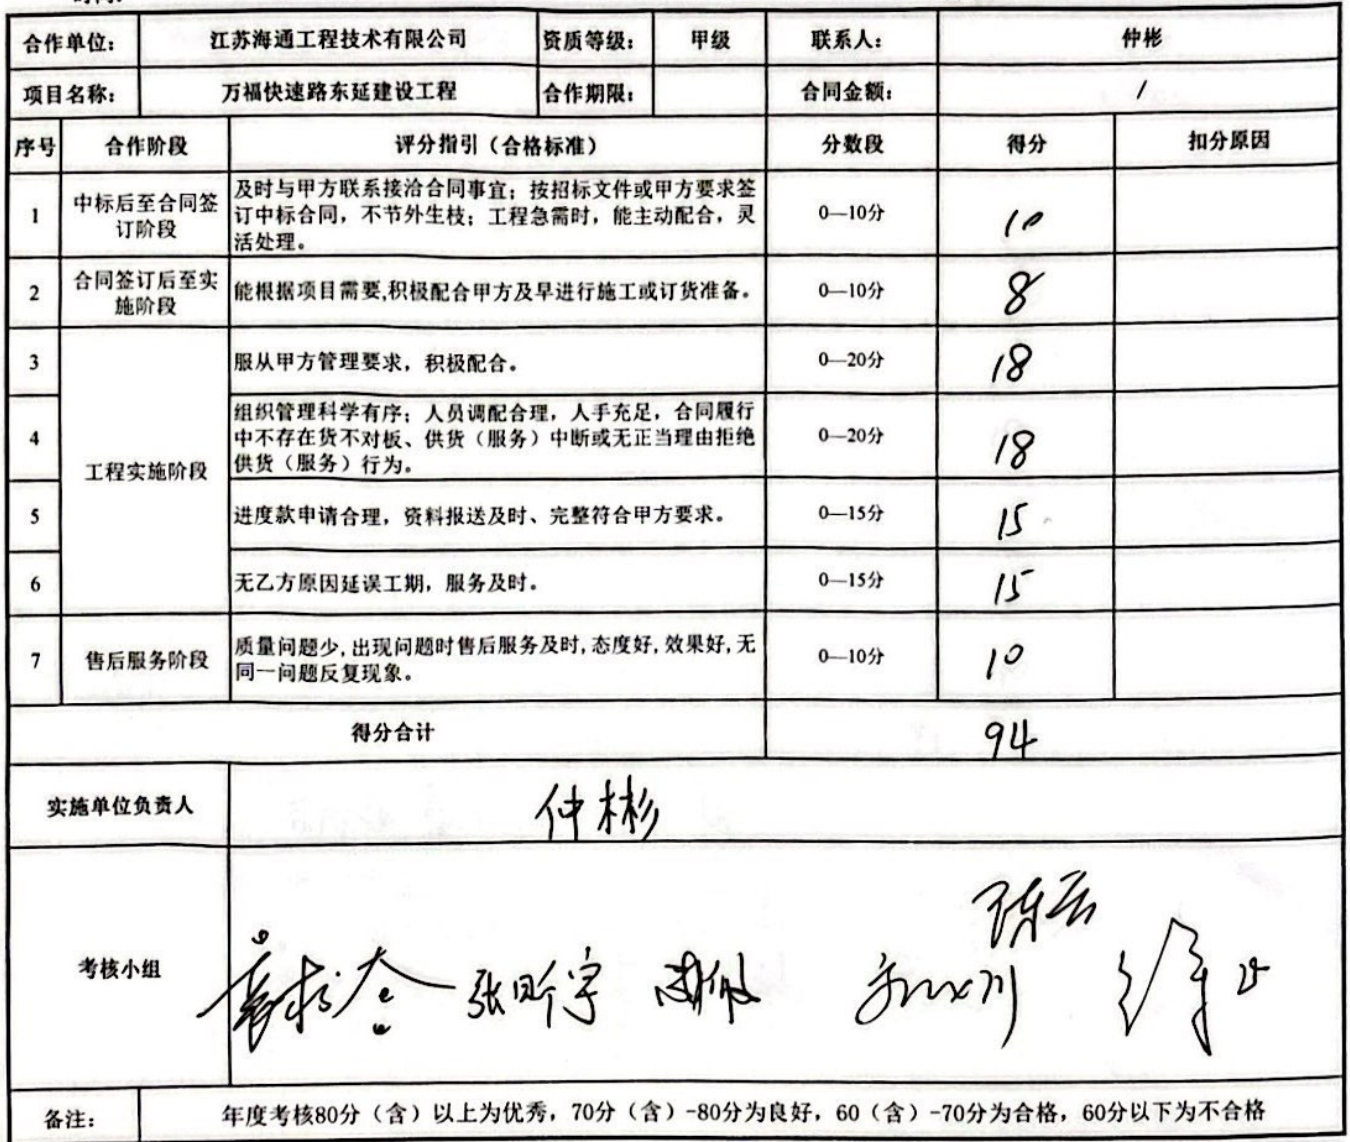 合作单位： 江苏海通工程技术有限公司 资质等级： 甲级 联系人： 仲彬
项目名称： 万福快速路东延建设工程 合作期限： 合同金额： /
序号 合作阶段 评分指引（合格标准） 分数段 得分 扣分原因
1 中标后至合同签
订阶段
及时与甲方联系接洽合同事宜；按招标文件或甲方要求签
订中标合同，不节外生枝；工程急需时，能主动配合，灵
活处理。
0—10分 10
2 合同签订后至实
施阶段
能根据项目需要,积极配合甲方及早进行施工或订货准备。
0—10分 8
3 服从甲方管理要求，积极配合。 0—20分 18
工程实施阶段
4 组织管理科学有序；人员调配合理，人手充足，合同履行
中不存在货不对板、供货（服务）中断或无正当理由拒绝
供货（服务）行为。
0—20分 18
5 进度款申请合理，资料报送及时、完整符合甲方要求。 0—15分 15
6 无乙方原因延误工期，服务及时。 0—15分 15
7 售后服务阶段 质量问题少,出现问题时售后服务及时,态度好,效果好,无
同一问题反复现象。
0—10分 10
得分合计 94
实施单位负责人 仲彬
考核小组
陈云
备注： 年度考核80分（含）以上为优秀，70分（含）-80分为良好，60（含）-70分为合格，60分以下为不合格